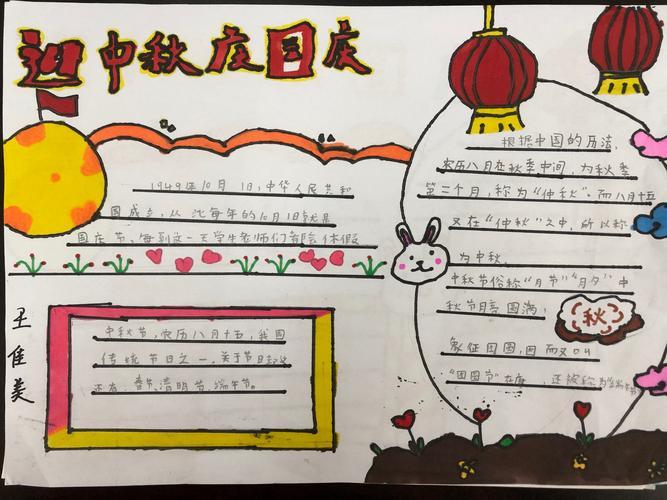 迎中秋庆国庆
1949年10月1日,中华人民共和
国成立,从此每年的10月1日就是
国庆节,每到这一天学生老师们都会休假
中秋节,农历八月十五,我国
传统节日之一,关于节日
还有春节、清明节、端午节。
王佳美
根据中国的历法,
农历八月在秋季中间,为秋季
第二个月,称为“仲秋”。而八月十五
又在“仲秋”之中,所以称
为中秋。
中秋节俗称“月节”“月夕”中
秋节月亮圆满,
秋
象征团圆,因而又叫
“团圆节”在 ,还被称为